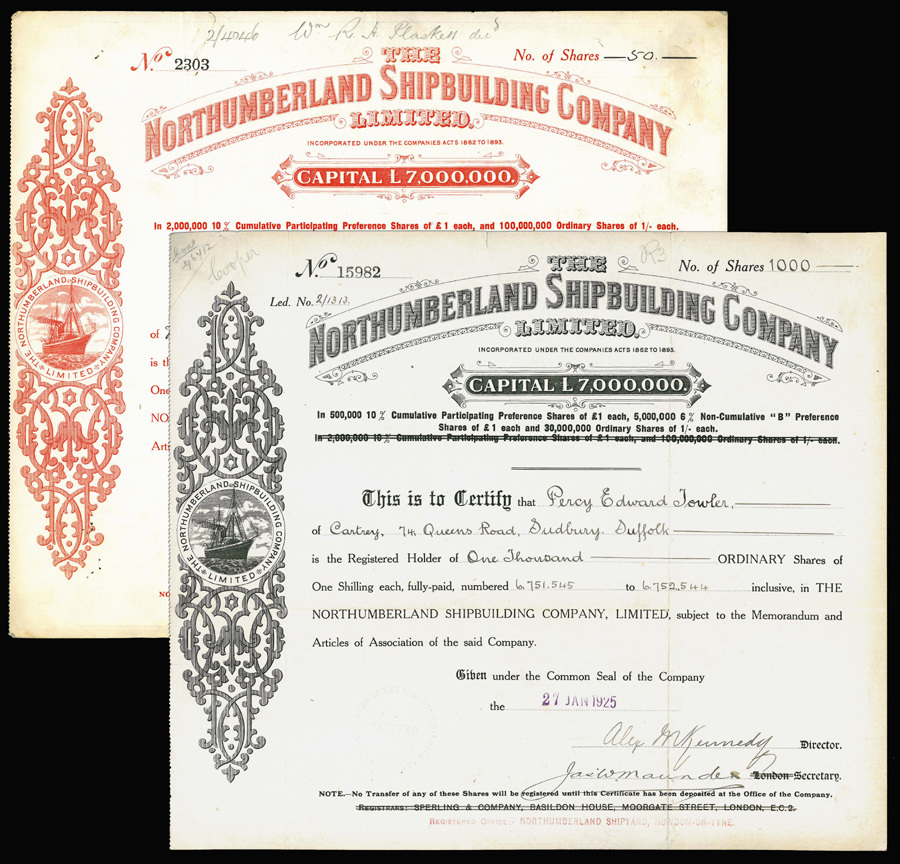 2/4046 Wm R. A. Plaskett decd
No. 2303
No. of Shares 50.
THE
NORTHUMBERLAND SHIPBUILDING COMPANY
LIMITED.
INCORPORATED UNDER THE COMPANIES ACTS 1862 TO 1893.
CAPITAL L 7,000,000.
In 2,000,000 10% Cumulative Participating Preference Shares of £1 each, and 100,000,000 Ordinary Shares of 1/- each.
THE NORTHUMBERLAND SHIPBUILDING COMPANY LIMITED
of
is
One
NO
Arti
NO
Cooper
No. 15982
No. of Shares 1000
Led. No. 2/1313.
THE
NORTHUMBERLAND SHIPBUILDING COMPANY
LIMITED.
INCORPORATED UNDER THE COMPANIES ACTS 1862 TO 1893.
CAPITAL L 7,000,000.
In 500,000 10% Cumulative Participating Preference Shares of £1 each, 5,000,000 6% Non-Cumulative "B" Preference
Shares of £1 each and 30,000,000 Ordinary Shares of 1/- each.
In 2,000,000 10% Cumulative Participating Preference Shares of £1 each, and 100,000,000 Ordinary Shares of 1/- each.
THE NORTHUMBERLAND SHIPBUILDING COMPANY LIMITED
This is to Certify that Percy Edward Towler,
of Cartrey, 74 Queens Road, Sudbury. Suffolk
is the Registered Holder of One Thousand ORDINARY Shares of
One Shilling each, fully-paid, numbered 6.751.545 to 6.752,544 inclusive, in THE
NORTHUMBERLAND SHIPBUILDING COMPANY, LIMITED, subject to the Memorandum and
Articles of Association of the said Company.
Given under the Common Seal of the Company
the 27 JAN 1925
Alex M Kennedy Director.
Jas W Maunder London Secretary.
NOTE.—No Transfer of any of these Shares will be registered until this Certificate has been deposited at the Office of the Company.
REGISTRARS: SPERLING & COMPANY, BASILDON HOUSE, MOORGATE STREET, LONDON, E.C.2.
REGISTERED OFFICE:- NORTHUMBERLAND SHIPYARD, HOWDON-ON-TYNE.